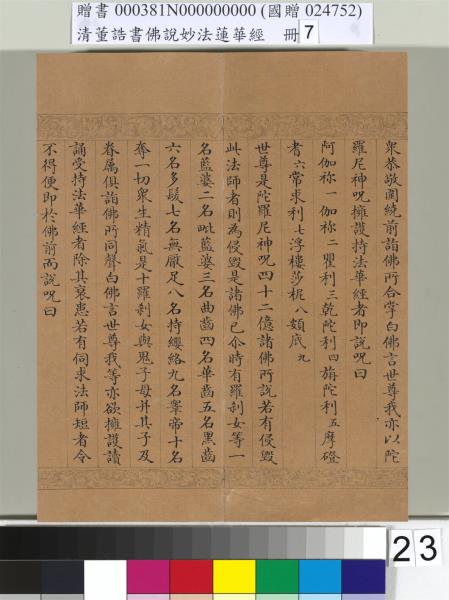 贈書 000381N000000000 (國贈 024752)
清董誥書佛說妙法蓮華經 冊 7
衆恭敬圍繞前詣佛所合掌白佛言世尊我亦以陀
羅尼神呪擁護持法華經者即說呪曰
阿伽祢一伽祢二瞿利三乾陀利四旃陀利五摩蹬
耆六常求利七浮樓莎柅八頞底九
世尊是陀羅尼神呪四十二億諸佛所說若有侵毀
此法師者則為侵毀是諸佛已尒時有羅剎女等一
名藍婆二名毗藍婆三名曲齒四名華齒五名黑齒
六名多髮七名無厭足八名持纓絡九名睪帝十名
奪一切衆生精氣是十羅剎女與鬼子母并其子及
眷属俱詣佛所同聲白佛言世尊我等亦欲擁護讀
誦受持法華經者除其衰患若有伺求法師短者令
不得便即於佛前而說呪曰
23